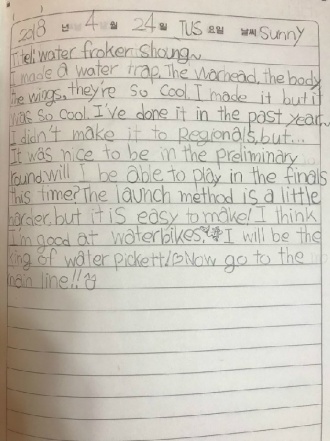 2018 년 4 월 24 일 TUS 요일 날씨 Sunny
Title: water froker shoung~
I made a water trap. The warhead, the body
the wings, they're so cool I made it but it
was so cool. I've done it in the past year~
I didn't make it to Regionals, but...
It was nice to be in the Preliminary
round. will I be able to play in the finals
this time? The launch method is a little
harder, but it is easy to make! I think
I'm good at waterbikes. I will be the
king of water pickett! Now go to the
main line!!